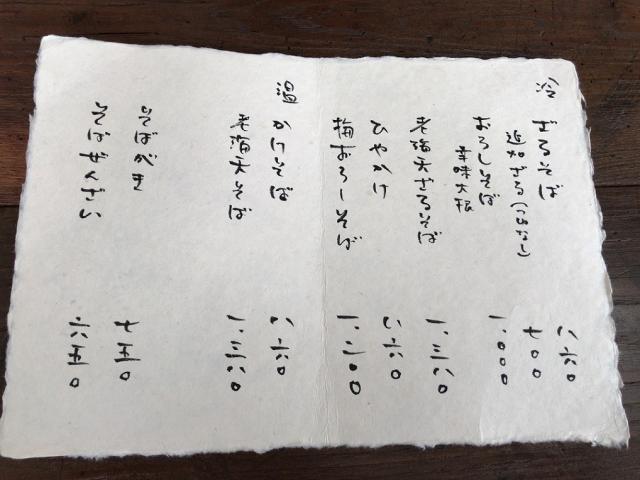 冷 ざるそば 八六〇
追加ざる(つゆなし) 七〇〇
おろしそば 一、〇〇〇
辛味大根
老海天ざるそば 一、三八〇
ひやかけ 八六〇
梅おろしそば 一、二〇〇
温 かけそば 八六〇
老海天そば 一、三八〇
そばがき 七五〇
そばぜんざい 六五〇